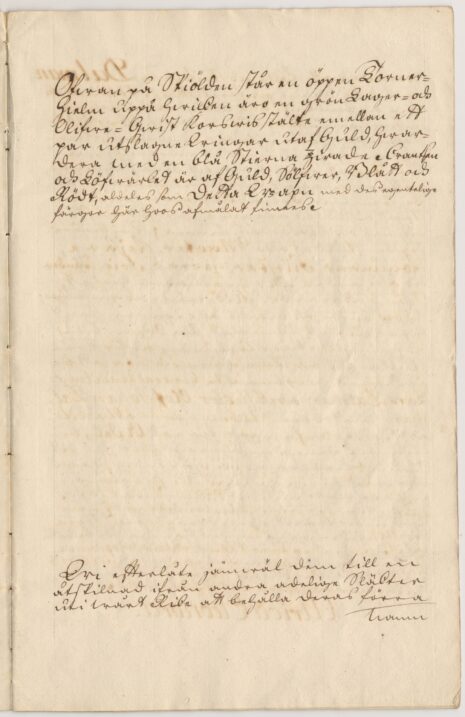 Ofwan på Skiölden står en öppen Torner-
hielm uppå hwilken äro en grön Lager- och
Olifwe-Qwist korswis stälte emellan ett
par utslagne Wingar utaf Guld, hwar-
dera med en blå Stierna zirade. Crantzen
och Löfwärket är af Guld, Silfwer, Blått och
Rödt, aldeles som Detta Wapn med des egentelige
färger här hoos afmålat finnes.
Wi efterlåte jämwäl dem till en
åtskilnad ifrån andra adelige Släkter
uti wårt Rike att behålla deras förra
Namn